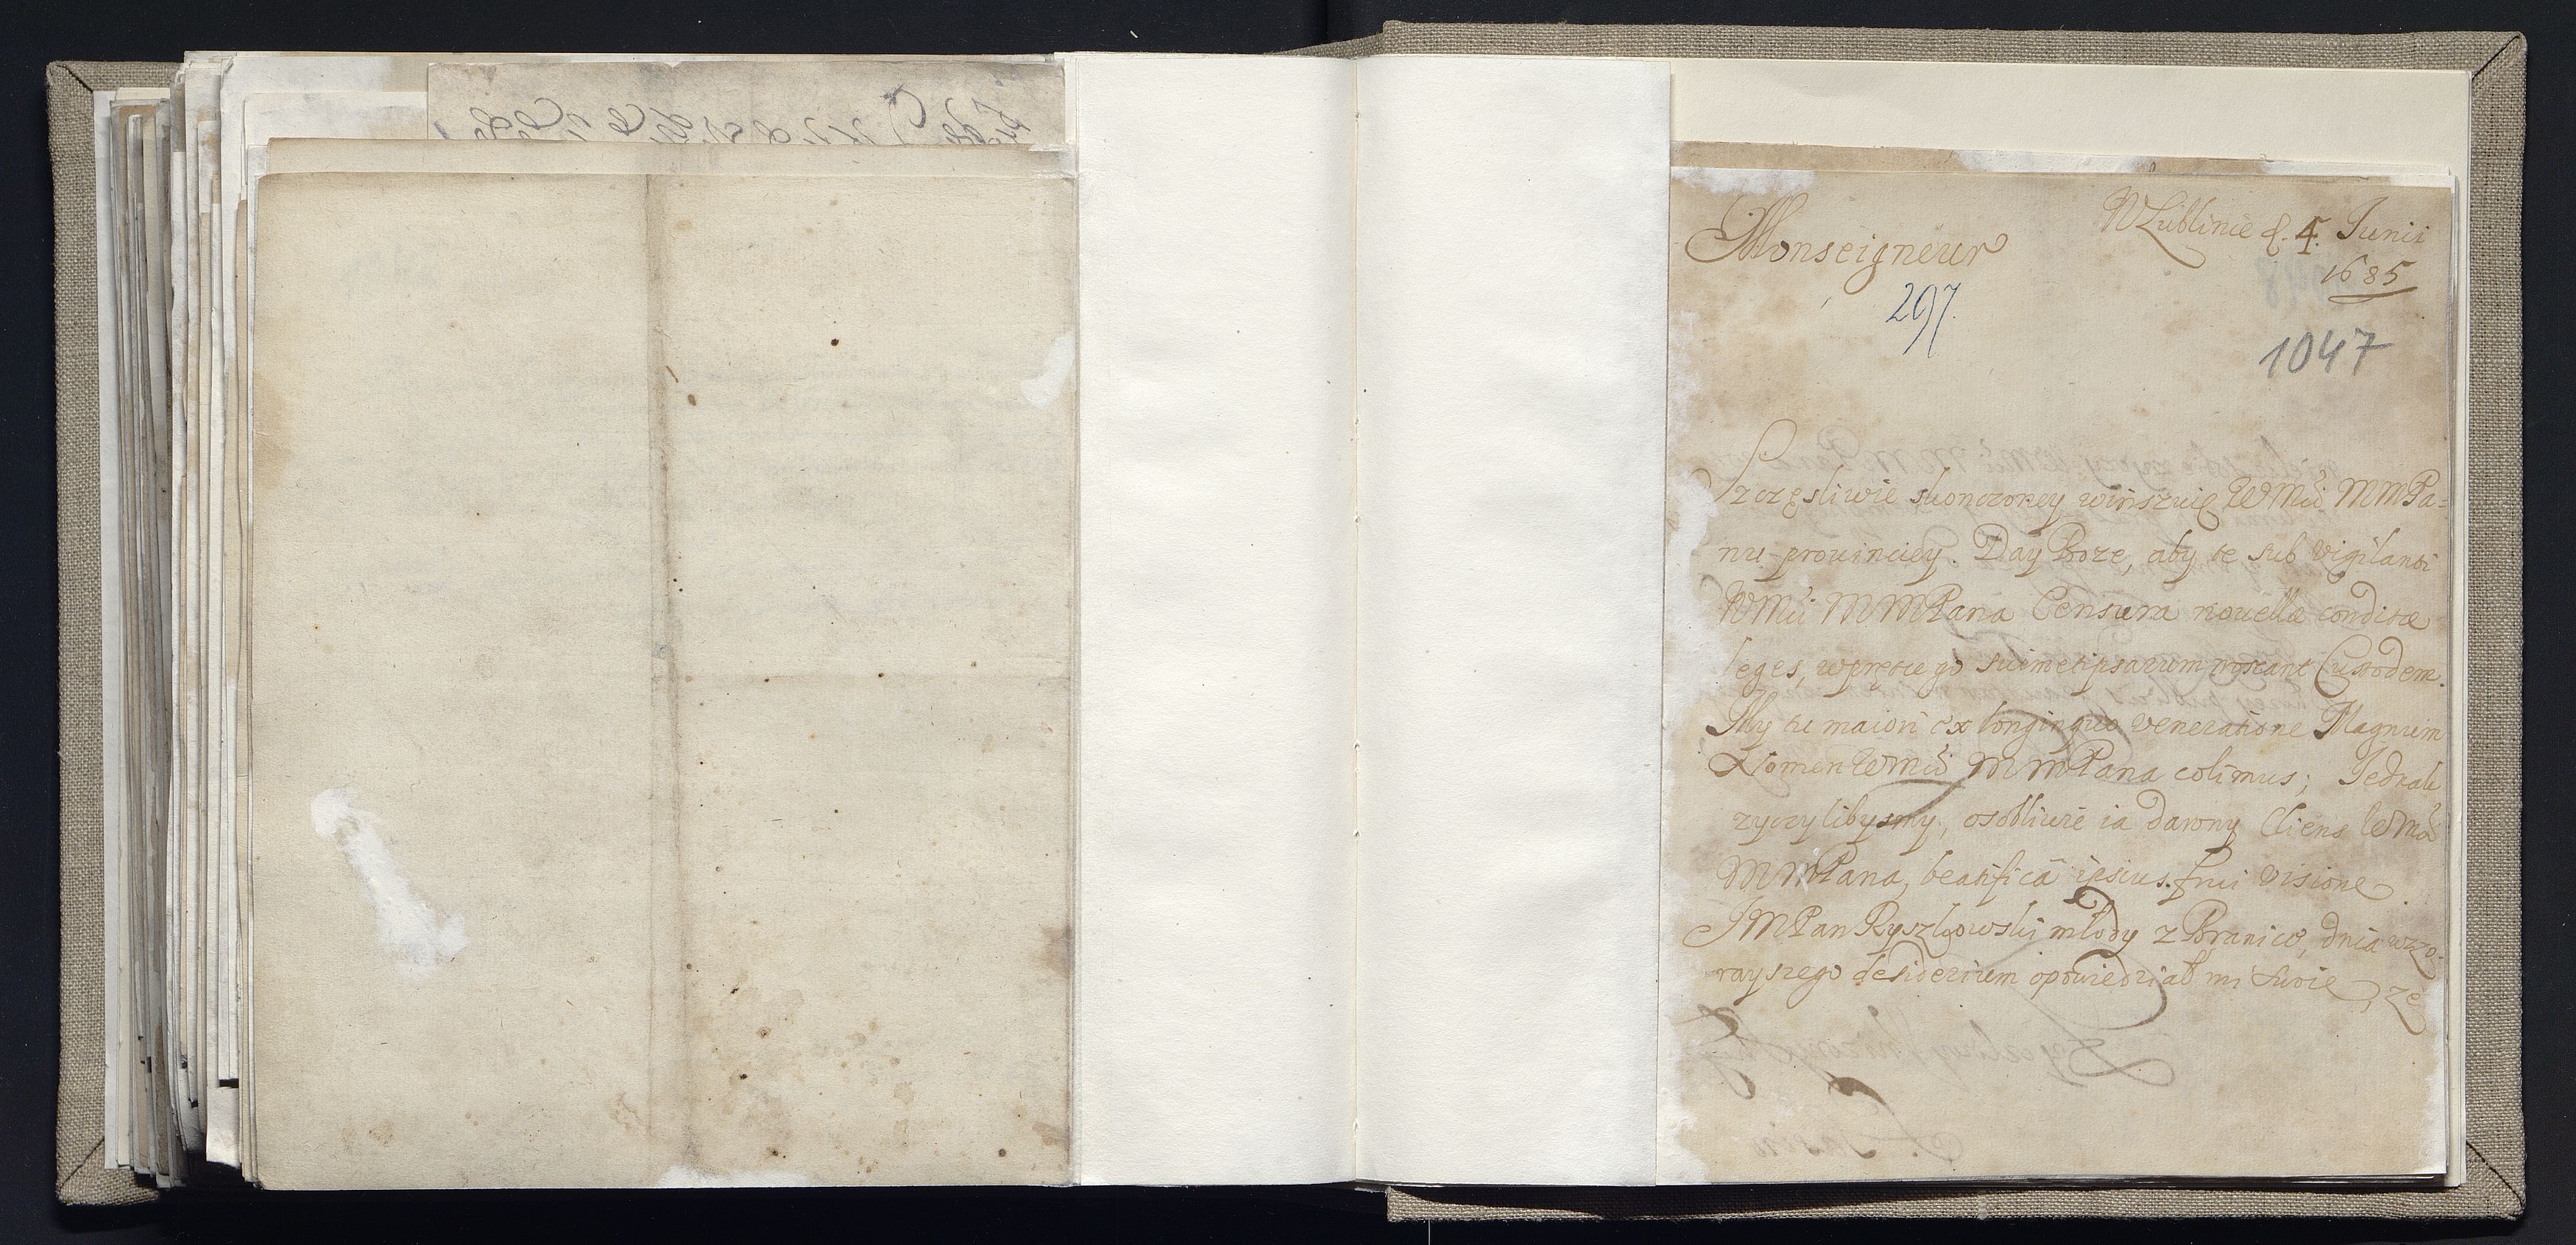 W Lublinie d. 4. Junii
1685
Monseigneur
297.
1047
Szczęsliwie skonczoney winszuię WMći MMPa-
nu prouinciey. Day Boze, aby te sub vigilanti
WMći MMPana Censura nouellæ conditæ
leges, wprętce go suimetipsarum noscant Custodem.
My tu maiori ex longinquo veneratione Magnum
Nomen WMći MMPana colimus; Jednak
zyczylibysmy, osobliwie ia dawny Cliens WMći
MMPana, beatificâ ipsius frui visione.
JMPan Ryszkowski młody z Branicw, dnia wczo-
rayszego desiderium opowiedział mi swoie, ze